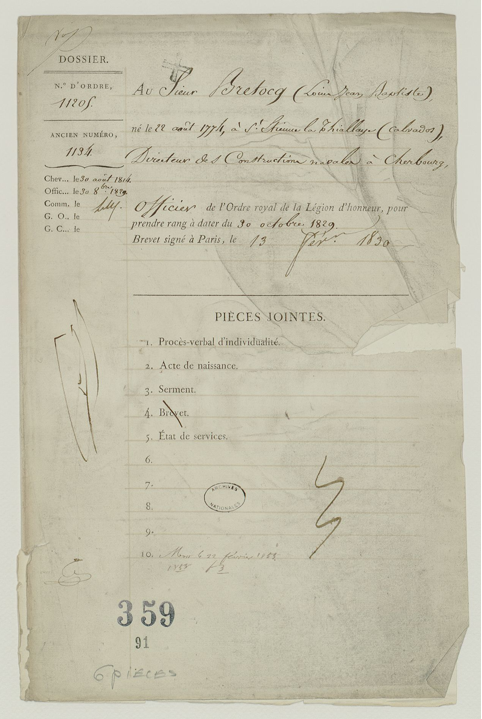 DOSSIER.
N.º D'ORDRE,
11205.
ANCIEN NUMÉRO,
1134
Chev... le 30 août 1814
Offic... le 30 8bre 1829.
Comm. le
G. O... le
G. C... le
Au Sieur Bretocq (Louis Jean Baptiste),
né le 22 août 1774, à St. Etienne la Thillaye (Calvados),
Directeur des Constructions navales à Cherbourg,
Officier de l'Ordre royal de la Légion d'honneur, pour
prendre rang à dater du 30 octobre 1829.
Brevet signé à Paris, le 13 fév. 1830
PIÈCES JOINTES.
1. Procès-verbal d'individualité.
2. Acte de naissance.
3. Serment.
4. Brevet.
5. État de services.
6.
7.
ARCHIVES
NATIONALES
8.
9.
10. Mort le 22 février
359
91
6 PIECES